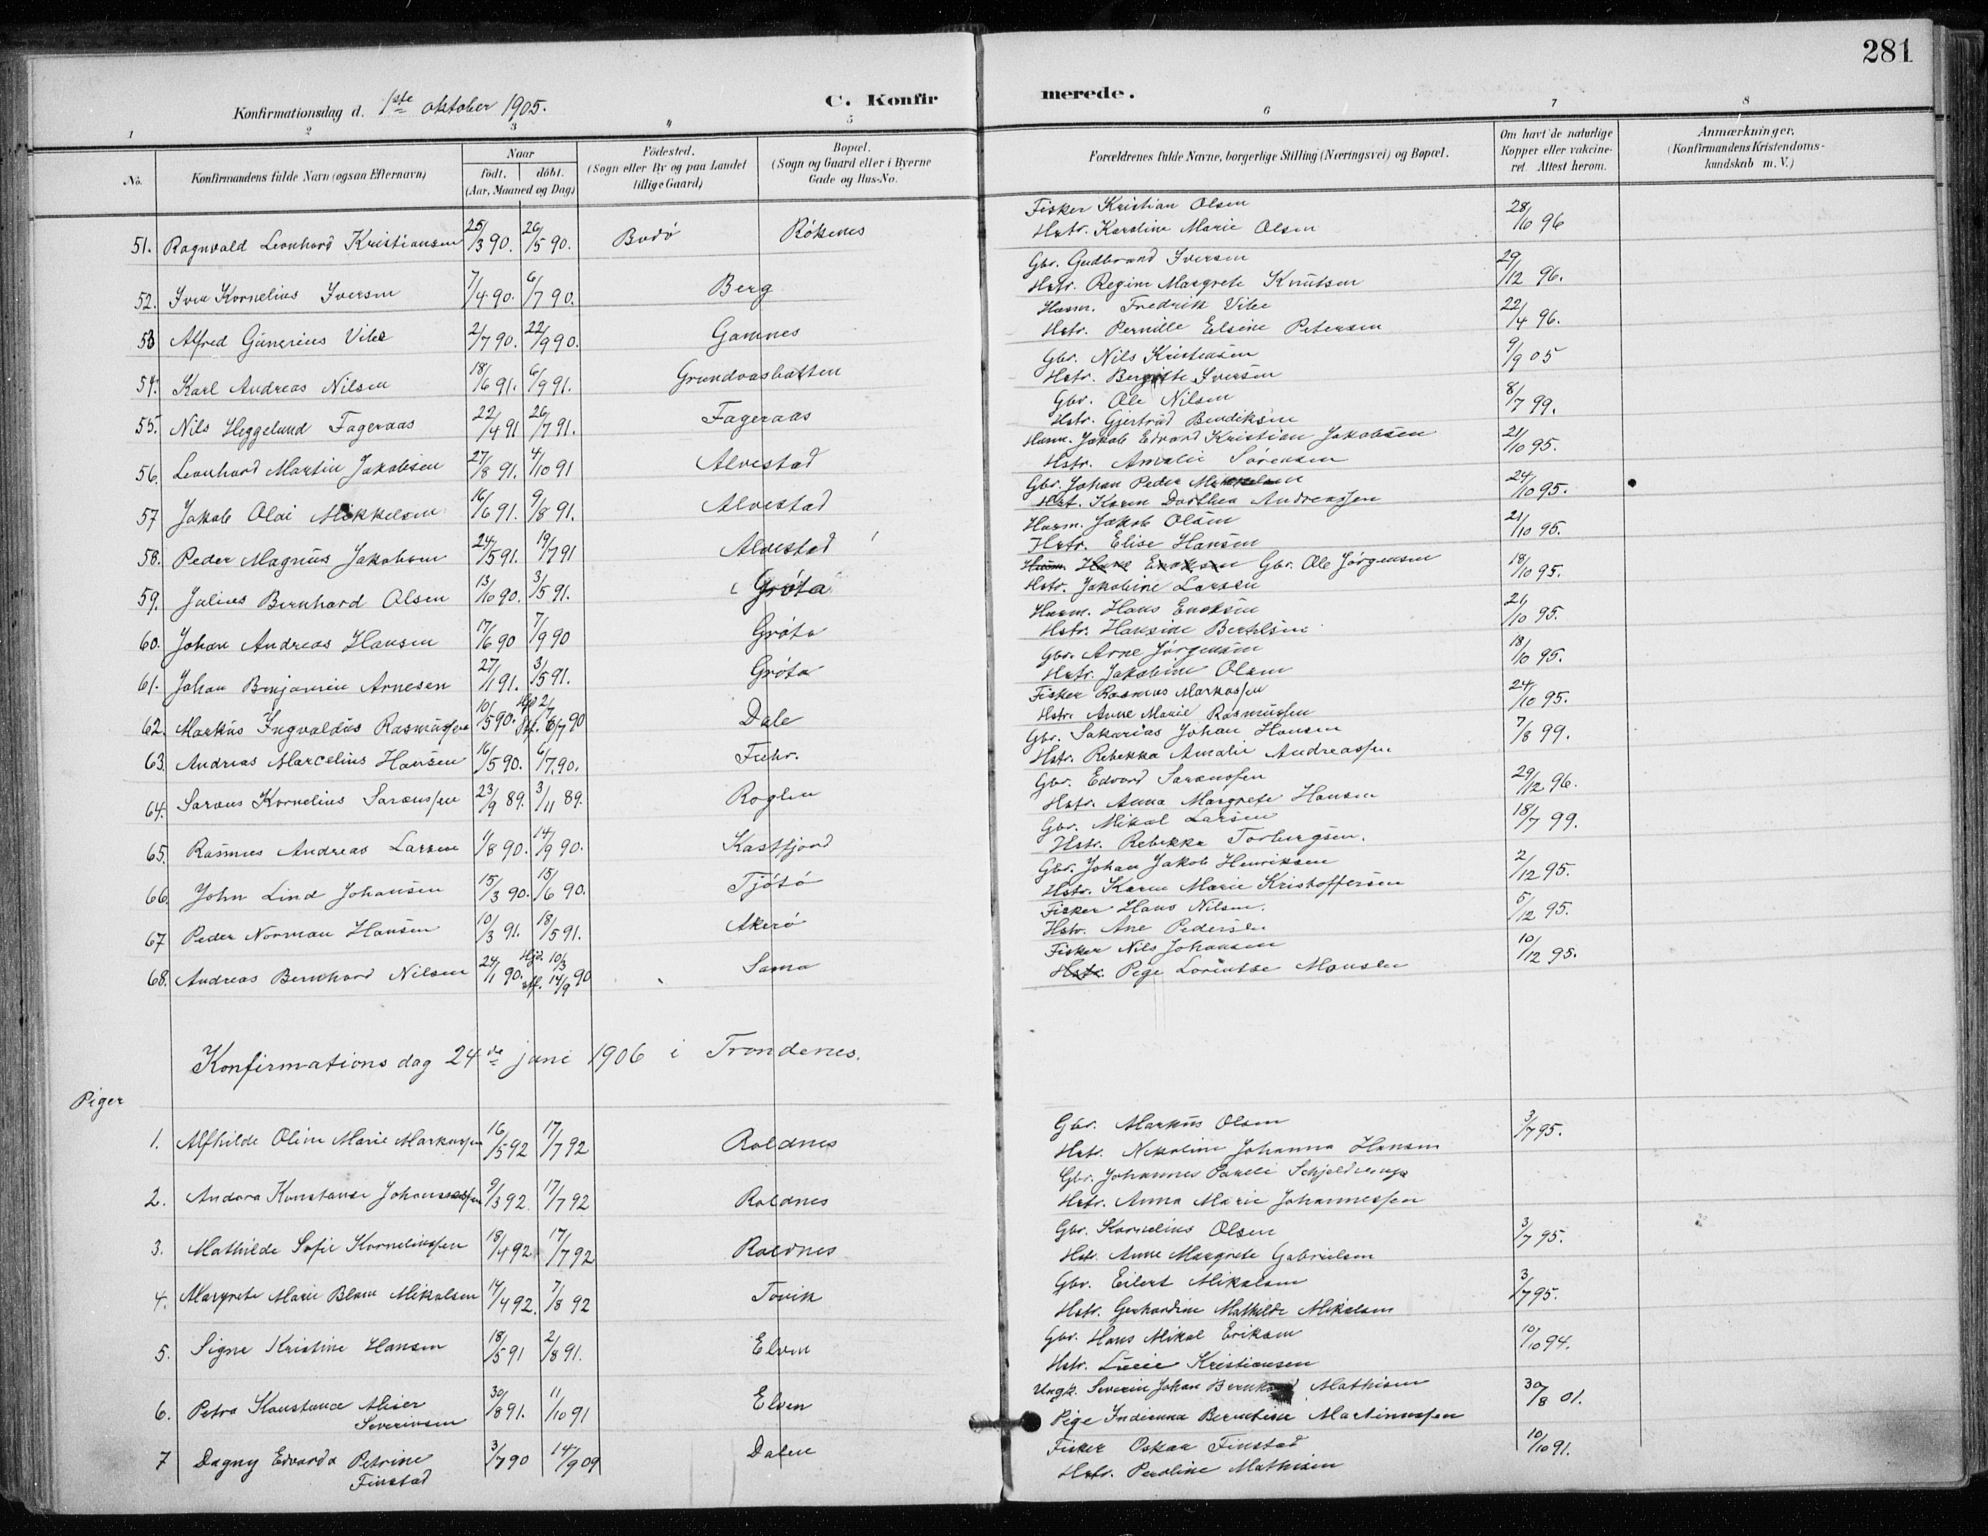 281
Konfirmationsdag d. 1ste oktober 1905. C. Konfirmerede.
1 2 3 4 5 6 7 8
No. Konfirmandens fulde Navn (ogsaa Efternavn) Naar født. døbt. (Aar, Maaned og Dag) Fødested. (Sogn eller By og paa Landet tillige Gaard) Bopæl. (Sogn og Gaard eller i Byerne Gade og Hus-No. Forældrenes fulde Navne, borgerlige Stilling (Næringsvei) og Bopæl. Om havt de naturlige Kopper eller vakcineret. Attest herom. Anmærkninger. (Konfirmandens Kristendomskundskab m. V.)
51. Ragnvald Leonhard Kristiansen 25/3 90. 26/5 90. Bodø Røkenes Fisker Kristian Olsen 28/10 96
Hstr. Karoline Marie Olsen
52. Iver Kornelius Iversen 7/4 90. 6/7 90. Berg Gbr. Gudbrand Iversen 29/12 96.
Hstr. Regine Margrete Knutsen
53 Alfred Gunerius Vibe 2/7 90. 22/9 90. Gamnes Husm. Fredrik Vibe 22/4 96.
Hstr. Pernille Elsine Petersen
54. Karl Andreas Nilsen 18/6 91. 6/9 91. Grundvasbatten Gbr. Nils Kristensen 9/9 05
Hstr. Bergitte Iversen
55. Nils Heggelund Fageraas 22/4 91 26/7 91. Fageraas Gbr. Ole Nilsen 8/7 99.
Hstr. Gjertrud Bendiksen
56. Leonhard Martin Jakobsen 27/8 91. 4/10 91 Alvestad Husm. Jakob Edvard Kristian Jakobsen 21/10 95.
Hstr. Amalie Sørensen
57 Jakob Olai Mikkelsen 16/6 91. 9/8 91. Alvestad Gbr. Johan Peder Mikkelsen 24/10 95.
Hst. Karen Dorthea Andreassen
58. Peder Magnus Jakobsen 24/5 91. 19/7 91 Alvestad Husm. Jakob Olsen 21/10 95.
Hstr. Elise Hansen
59. Julius Bernhard Olsen 13/10 90. 3/5 91. Grøta Husm. Hans Enoksen Gbr. Ole Jørgensen 18/10 95.
Hstr. Jakobine Larsen
60. Johan Andreas Hansen 17/6 90 7/9 90 Grøta Husm. Hans Enoksen 21/10 95.
Hstr. Hansine Bertelsen
61. Johan Benjamin Arnesen 27/1 91. 3/5 91. Grøta Gbr. Arne Jørgensen 18/10 95.
Hstr. Jakobine Olsen
62. Markus Ingvaldus Rasmussen 10/5 90. Hjd 2/7 stf. 6/7 90 Dale Fisker Rasmus Markussen 24/10 95.
Hstr. Anne Marie Rasmussen
63. Andreas Marcelius Hansen 16/5 90. 6/7 90. Gbr. Sakarias Johan Hansen 7/8 99.
Hstr. Rebekka Amalie Andreassen
64. Saraus Kornelius Saraussen 23/9 89. 3/11 89. Roglen Gbr. Edvard Saraussen 29/12 96.
Hstr. Anna Margrete Hansen
65. Rasmus Andreas Larsen 1/8 90. 14/9 90. Kastfjord Gbr. Mikal Larsen 18/7 99.
Hstr. Rebekka Torbergsen.
66. John Lind Johansen 15/3 90. 15/6 90. Tjøtø Gbr. Johan Jakob Henriksen 2/12 95.
Hstr. Karen Marie Kristoffersen
67 Peder Norman Hansen 10/3 91. 18/5 91. Akerø Fisker Hans Nilsen. 5/12 95.
Hstr. Ane Pedersen
68. Andreas Bernhard Nilsen 24/1 90. Hjd. 10/3 stf. 14/9 90 Sama Fisker Nils Johansen 10/12 95.
Hstr. Pige Lorentse Monsen
Konfirmationsdag 24de juni 1906 i Trondenes.
Piger
1. Alfhilde Oline Marie Markussen 16/5 92 17/7 92 Roldnes Gbr. Markus Olsen 3/7 95.
Hstr. Nikoline Johanna Hansen
2. Andora Konstanse Johannessen 9/3 92. 17/7 92 Roldnes Gbr. Johannes Pareli Schjelderup
Hstr. Anna Marie Johannessen
3. Mathilde Sofie Korneliussen 18/4 92 17/7 92 Roldnes Gbr. Kornelius Olsen 3/7 95.
Hstr. Anne Margrete Gabrielsen
4. Margrete Marie Blom Mikalsen 14/4 92. 7/8 92 Tovik Gbr. Eilert Mikalsen 3/7 95.
Hstr. Gerhardine Mathilde Mikalsen
5. Signe Kristine Hansen 18/5 91 2/8 91. Elven Gbr. Hans Mikal Eriksen 10/10 94.
Hstr. Lucie Kristiansen
6. Petra Konstance Aliser 30/8 91. 11/10 91 Elven Ungk. Severin Johan Bernhard Mathisen 30/8 01.
Severinsen Pige Indianna Berntine Martinussen
7 Dagny Edvarda Petrine 3/7 90 14/9 09 Dalen Fisker Oskar Finstad 10/10 91.
Finstad Hstr. Peroline Mathisen